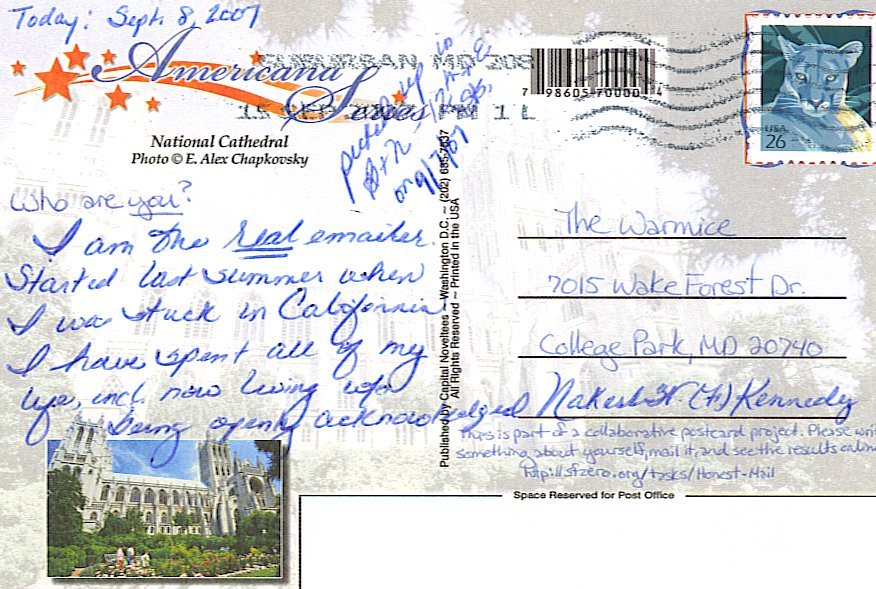 Today: Sept. 8, 2007
Americana
Series
SUBURBAN MD 208
15 SEP 2007 PM 1 L
7 98605 70000 4
USA
26
National Cathedral
Photo © E. Alex Chapkovsky
picked up in
B+N, 12th + E
on 9/7/07
Who are you?
I am the real emailer.
Started last summer when
I was stuck in California
I have spent all of my
life, incl. now living w/o
being openly acknowledged
Published by Capital Noveltees ~ Washington D.C. ~ (202) 635-7537
All Rights Reserved ~ Printed in the USA
The Warmice
7015 Wake Forest Dr.
College Park, MD 20740
Kennedy
This is part of a collaborative postcard project. Please wri
something about yourself, mail it, and see the results online
http://sfzero.org/tasks/Honest-Mail
Space Reserved for Post Office